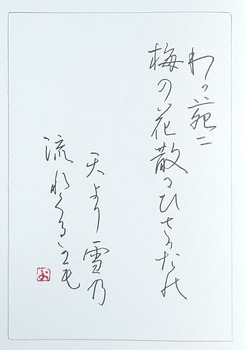 わが苑二
梅の花散るひさかたの
天より雪乃
流れくるかも